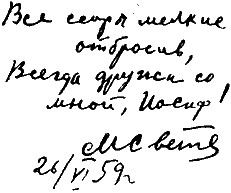 Все ссоры мелкие
отбросив,
Всегда дружи со
мной, Иосиф!
МСветл
26/VI 59г